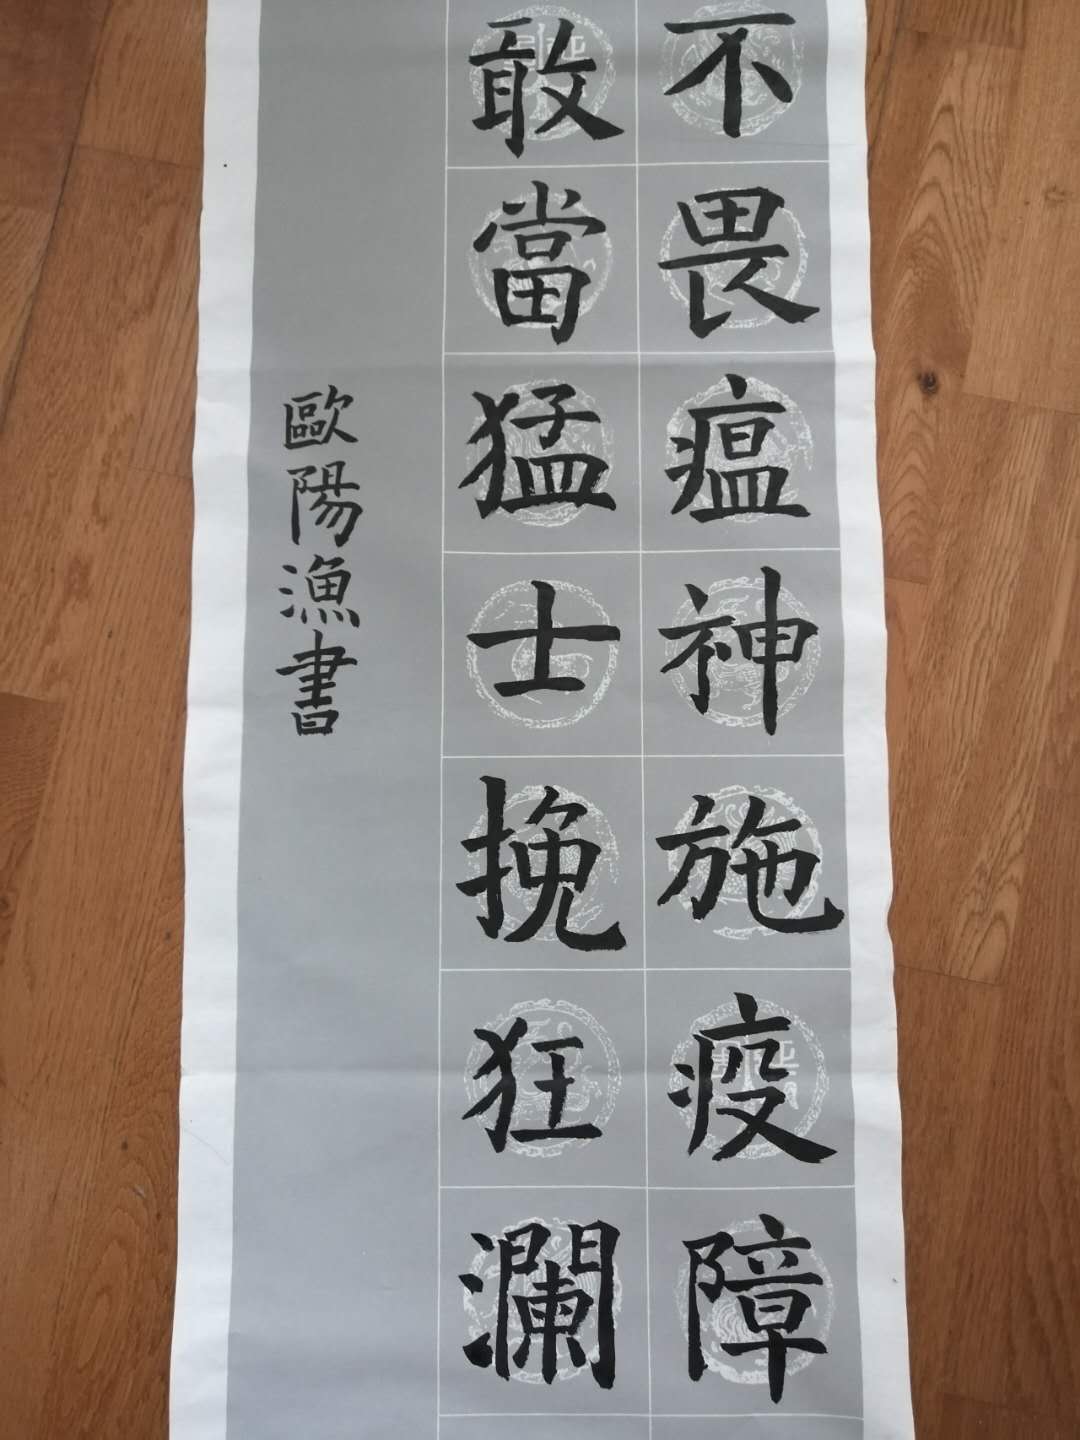 不畏瘟神施疫障
敢當猛士挽狂瀾
歐陽漁書